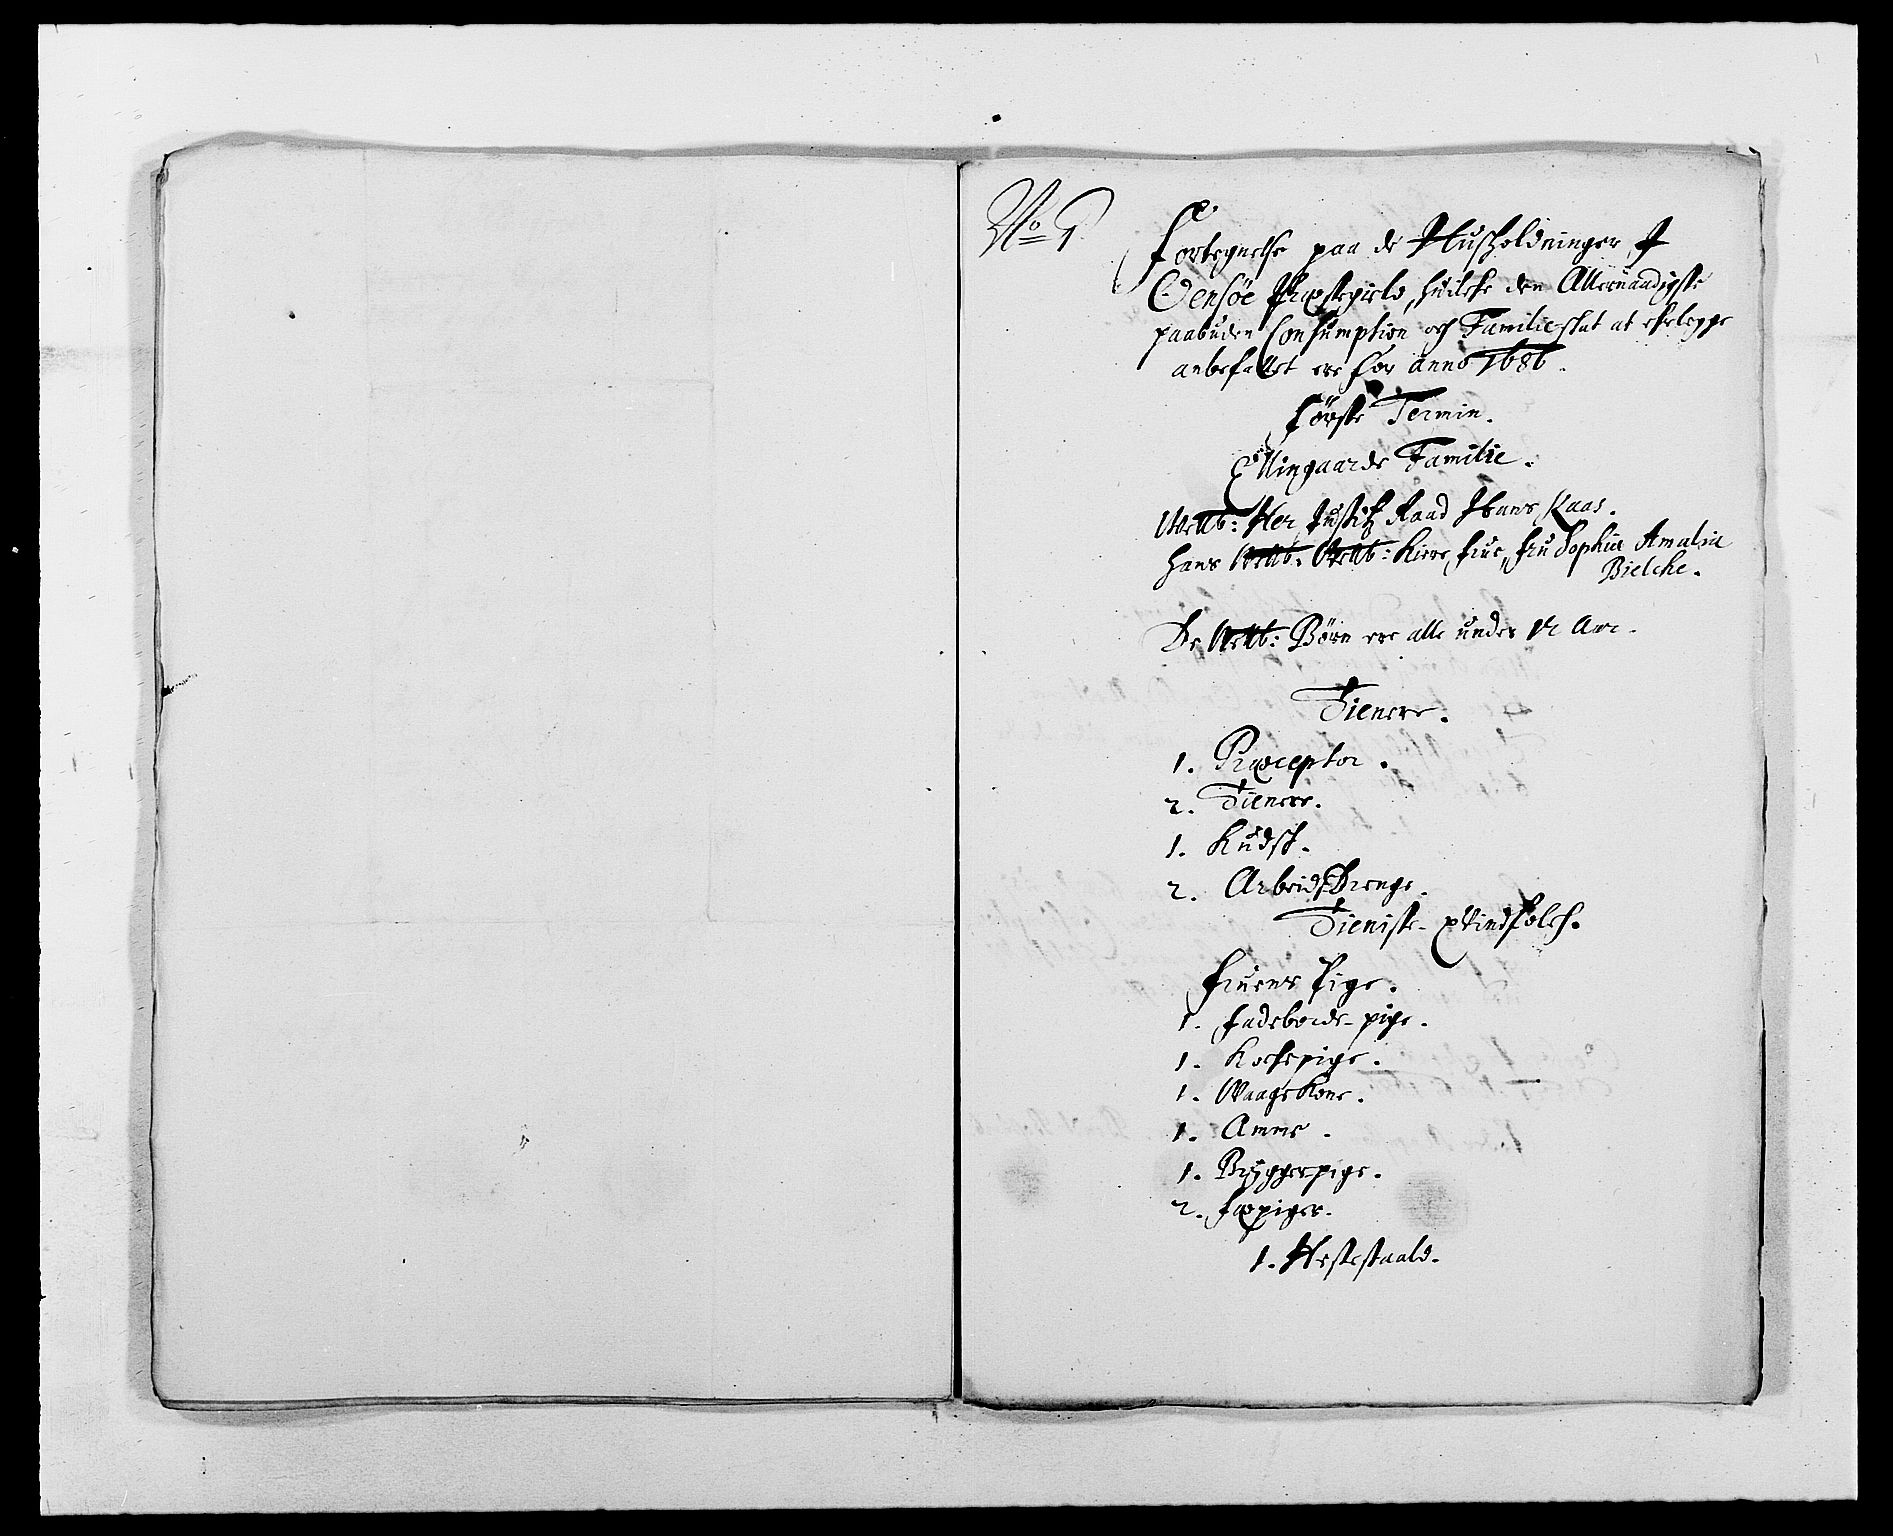 No 1.
Fortegnelse paa de Husholdninger J
Oensöe Præstegield, huilche den Allernaadigste
paabuden Consumption och Familie-skat at erlegge
anbefallet ere for anno 1686.
Første Termin.
Ellingaards Familie.
Welb: Her Justitz Raad Hans Kaas.
Hans Welb: Kiere frue, fru Sophia Amalia
Bielche.
De Welb: Børn ere alle under 12 Aar.
Tienere.
1. Præceptor.
2. Tienere.
1. Kudsk.
2. Arbeids Drenge.
Tieniste-qvindfolch.
Fruens Pige.
1. Fadebords-pige.
1. Kochepige.
1. Waage Kone.
1. Amme.
1. Bryggerpige.
2. Fæpiger.
1. Hestestaald.